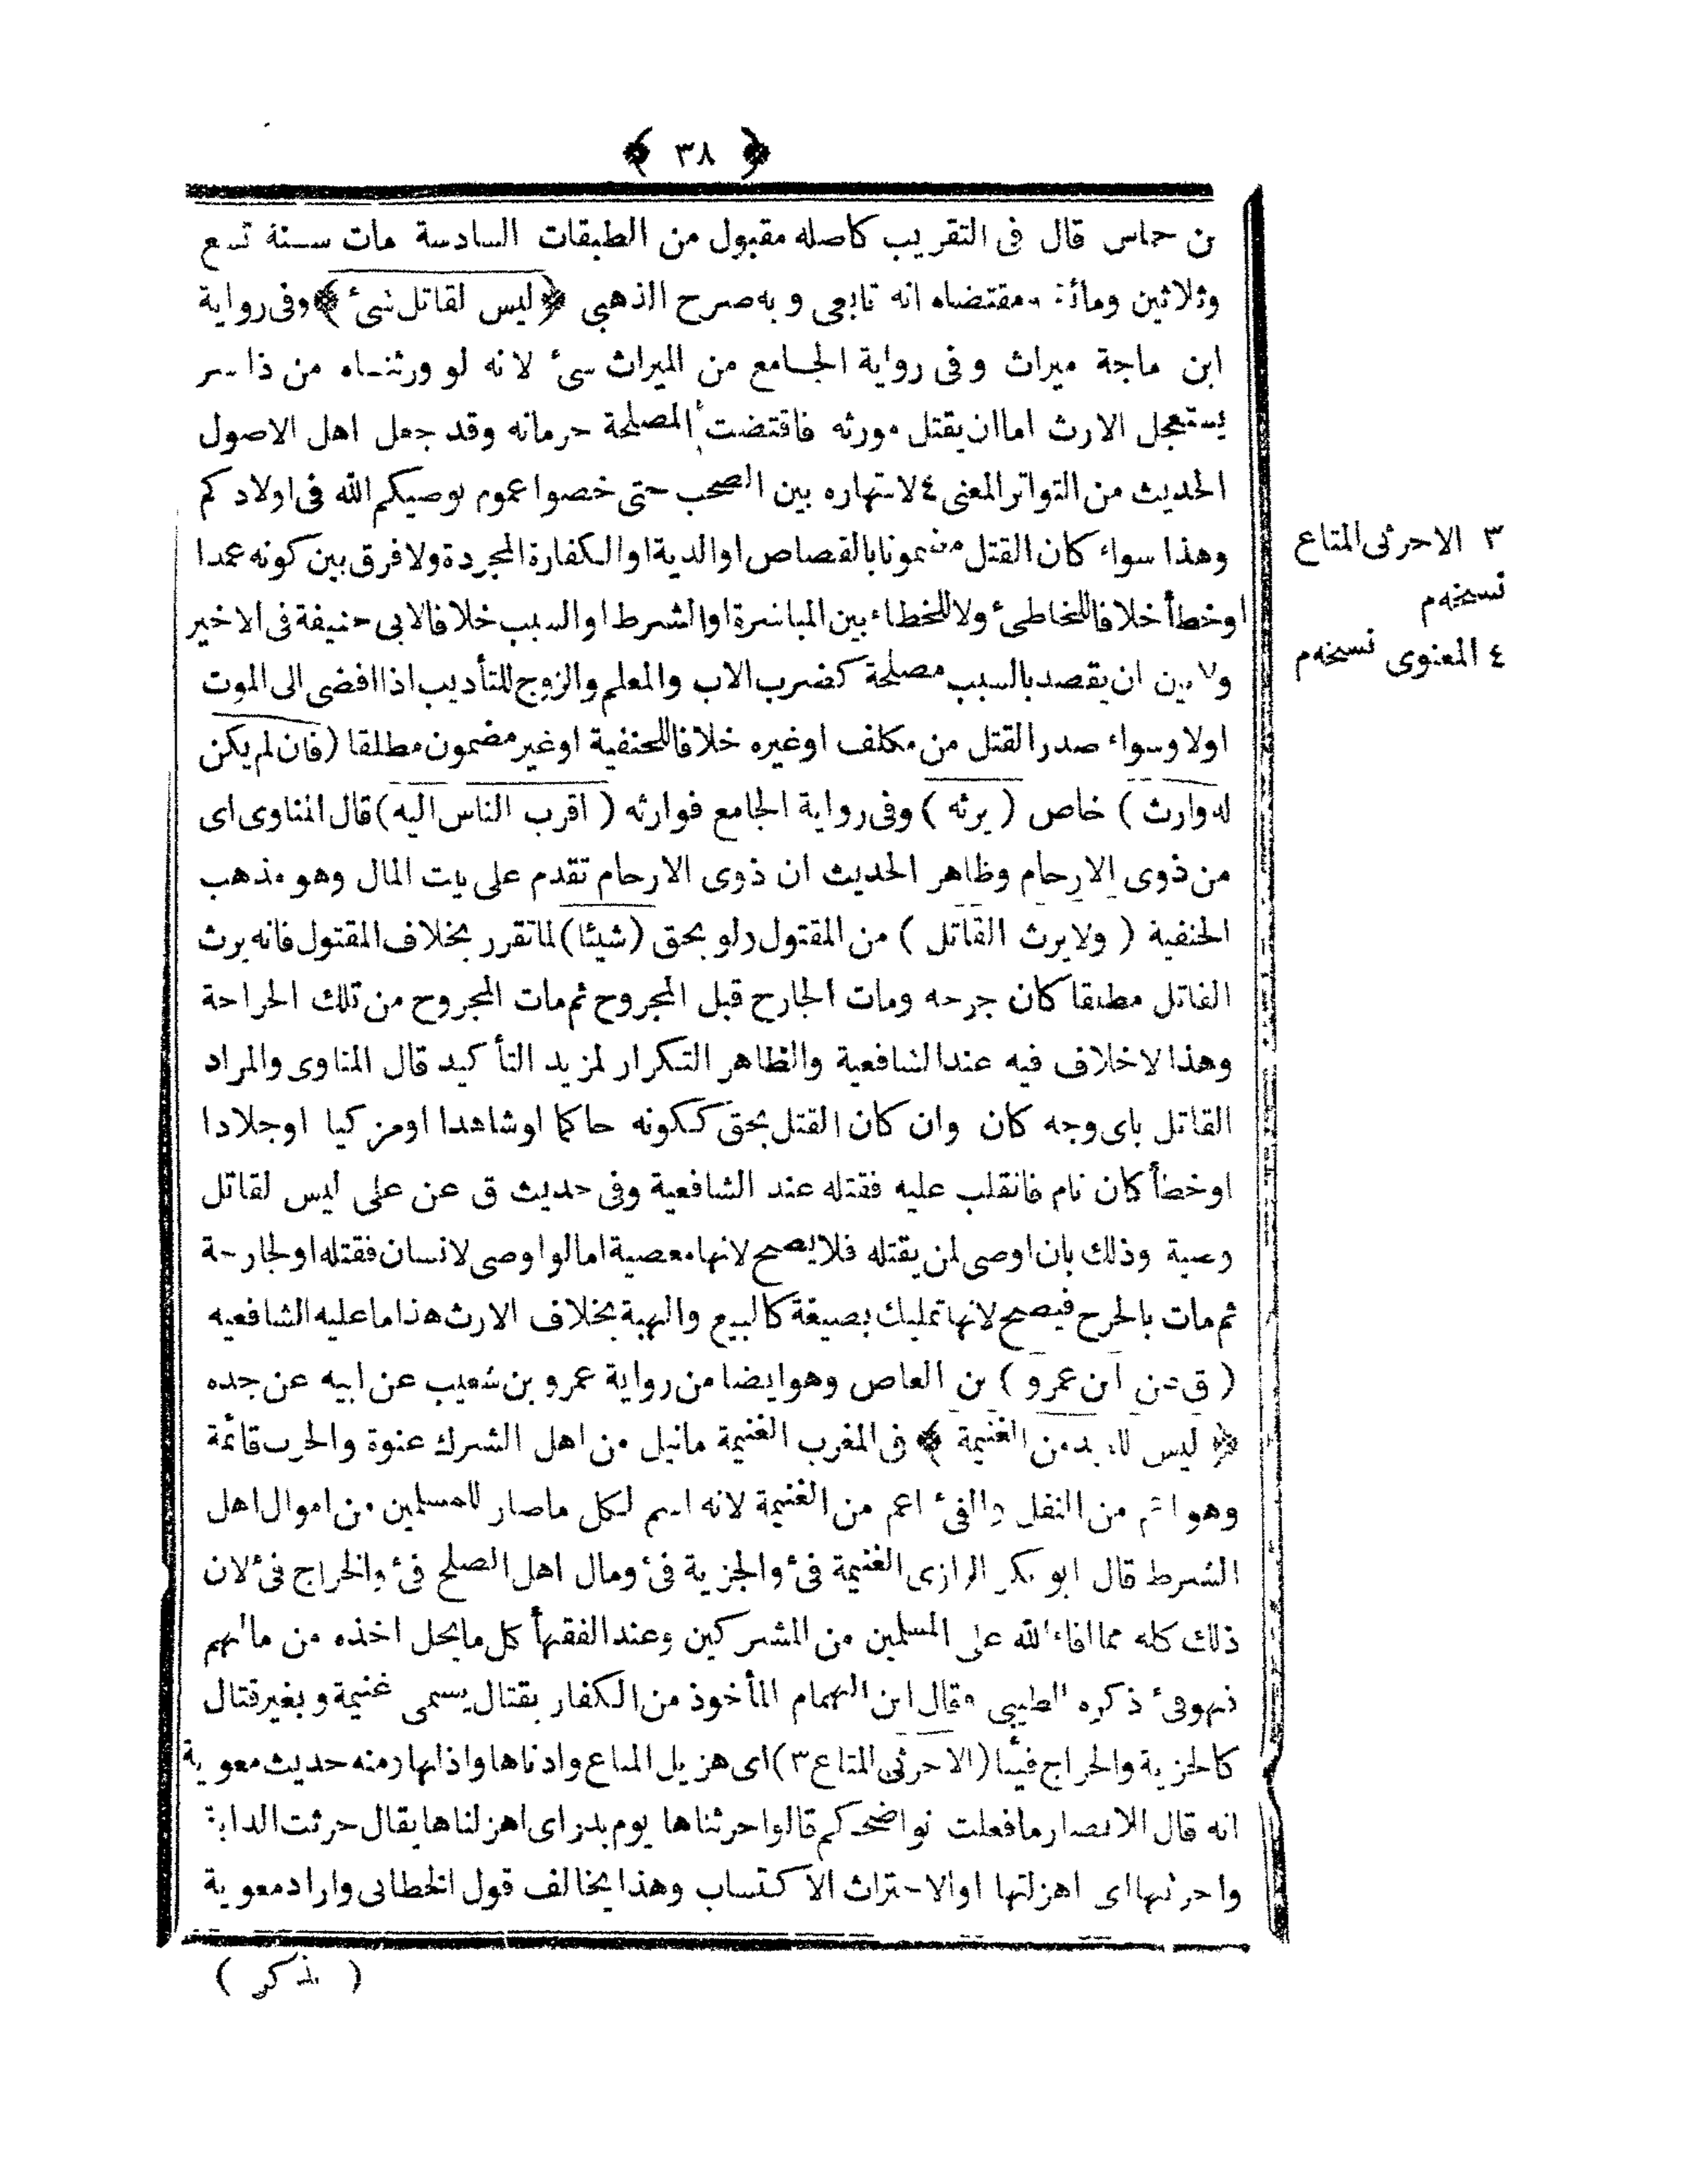 ﴿ ٣٨ ﴾
بن حماس قال فى التقريب كاصله مقبول من الطبقات السادسة مات سنة تسع
وثلاثين ومائة ومقتضاه انه تابعى وبه صرح الذهبى ﴿ ليس لقاتل شئ ﴾ وفى رواية
ابن ماجة ميراث وفى رواية الجامع من الميراث شئ لانه لو ورثناه من ذا
يستعجل الارث اماان يقتل مورثه فاقتضت المصلحة حرمانه وقد جعل اهل الاصول
الحديث من التواتر المعنى ٤ لاشتهاره بين الصحب حتى خصوا عموم يوصيكم الله فى اولادكم
وهذا سواء كان القتل مضمونا بالقصاص او الدية او الكفارة المجردة ولا فرق بين كونه عمدا
او خطأ خلافا للخاطئ ولا للخطاء بين المباشرة او الشرط او السبب خلافا لابى حنيفة فى الاخير
ولا بين ان يقصد بالسبب مصلحة كضرب الاب والمعلم والزوج للتأديب اذا افضى الى الموت
اولا وسواء صدر القتل من مكلف اوغيره خلافا للحنفية اوغير مضمون مطلقا ( فان لم يكن
له وارث ) خاص ( يرثه ) وفى رواية الجامع فوارثه ( اقرب الناس اليه ) قال المناوى اى
من ذوى الارحام وظاهر الحديث ان ذوى الارحام تقدم على بيت المال وهو مذهب
الحنفية ( ولا يرث القاتل ) من المقتول ولو بحق ( شيئا ) لما تقرر بخلاف المقتول فانه يرث
القاتل مطلقا كان جرحه ومات الجارح قبل المجروح ثم مات المجروح من تلك الجراحة
وهذا لاخلاف فيه عند الشافعية والظاهر التكرار لمزيد التأكيد قال المناوى والمراد
القاتل باى وجه كان وان كان القتل بحق ككونه حاكما او شاهدا او مزكيا او جلادا
او خطأ كان نام فانقلب عليه فقتله عند الشافعية وفى حديث ق عن على ليس لقاتل
وصية وذلك بان اوصى لمن يقتله فلا يصح لانها معصية امالو اوصى لانسان فقتله او لجارحة
ثم مات بالجرح فيصح لانها تمليك بصيغة كالبيع والهبة بخلاف الارث هذا ماعليه الشافعيه
( ق عن ابن عمرو ) بن العاص وهو ايضا من رواية عمرو بن شعيب عن ابيه عن جده
﴿ ليس للعبد من الغنيمة ﴾ فى المغرب الغنيمة مانيل من اهل الشرك عنوة والحرب قائمة
وهو اعم من النفل والفئ اعم من الغنيمة لانه اسم لكل ماصار للمسلمين من اموال اهل
الشرط قال ابو بكر الرازى الغنيمة فئ والجزية فئ ومال اهل الصلح فئ والخراج فئ لان
ذلك كله مما افاء الله على المسلمين من المشركين وعند الفقهأ كل مايحل اخذه من مالهم
فهو فئ ذكره الطيبى وقال ابن الهمام المأخوذ من الكفار بقتال يسمى غنيمة وبغير قتال
كالجزية والخراج فيئا ( الاحرثى المتاع ٣ ) اى هزيل المتاع وادناها واذا بها رمنه حديث معوية
انه قال الانصار مافعلت نواضحكم قالوا حرثناها يوم بدر اى اهزلناها يقال حرثت الدابة
واحرثتها اى اهزلتها او الاحتراث الاكتساب وهذا يخالف قول الخطابى واراد معوية
( بذكر )
٣ الاحرثى المتاع
نسخه م
٤ المعنوى نسخه م